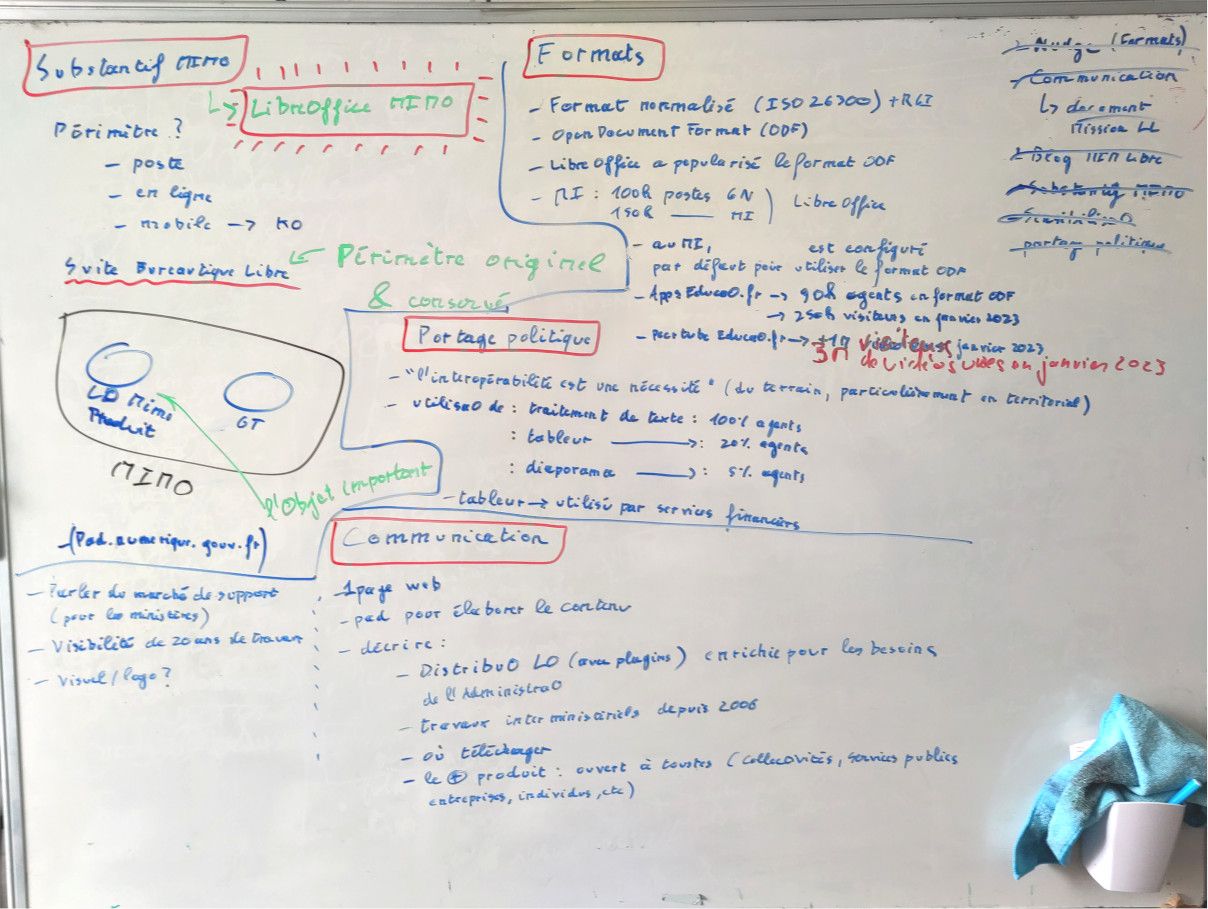 Substantif MIMO
↳ LibreOffice MIMO
Périmètre ?
- poste
- en ligne
- mobile → KO
Suite Bureautique Libre
← Périmètre originel
& conservé
LO Mimo
Produit
GT
MIMO
l'Objet important
Formats
- Format normalisé (ISO 26300) + RGI
- OpenDocument Format (ODF)
- LibreOffice a popularisé le format ODF
- MI : 100k postes GN
150k —— MI
LibreOffice
- au MI, est configuré
par défaut pour utiliser le format ODF
- Apps EducaO.fr → 90k agents en format ODF
→ 250k visiteurs en janvier 2023
- Peertube EducaO.fr → janvier 2023
3M de vidéos vues en janvier 2023
Portage politique
- "l'interopérabilité est une nécessité" (du terrain, particulièrement en territorial)
- utilisaO de : traitement de texte : 100% agents
: tableur → : 20% agents
: diaporama → : 5% agents
- tableur → utilisé par services financiers
Communication
- 1 page web
- pad pour élaborer le contenu
- décrire :
- DistribuO LO (avec plugins) enrichie pour les besoins
de l'AdministraO
- travaux interministériels depuis 2006
- où télécharger
- le ⊕ produit : ouvert à toustes (collectivités, services publics
entreprises, individus, etc)
- (Pad.numerique.gouv.fr)
- Parler du marché de support
(pour les ministères)
- Visibilité de 20 ans de travail
- Visuel / logo ?
- Nudge (Formats)
- Communication
↳ document
Mission LL
- Blog MIM Libre
- Substantif MIMO
- portage politique